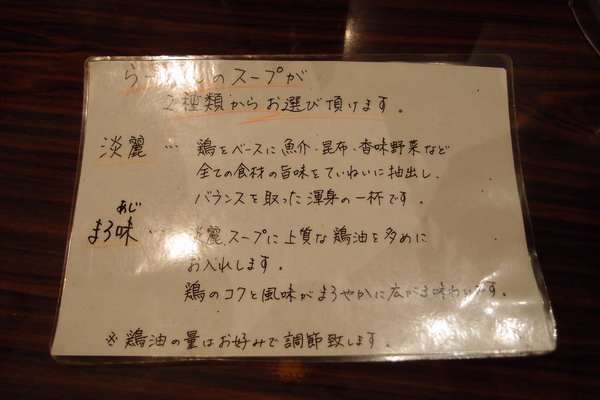 らーめんのスープが
2種類からお選び頂けます。
淡麗 … 鶏をベースに魚介・昆布・香味野菜など
全ての食材の旨味をていねいに抽出し、
バランスを取った渾身の一杯です。
あじ
まろ味 … 淡麗スープに上質な鶏油を多めに
お入れします。
鶏のコクと風味がまろやかに広がる味わいです。
※鶏油の量はお好みで調節致します。